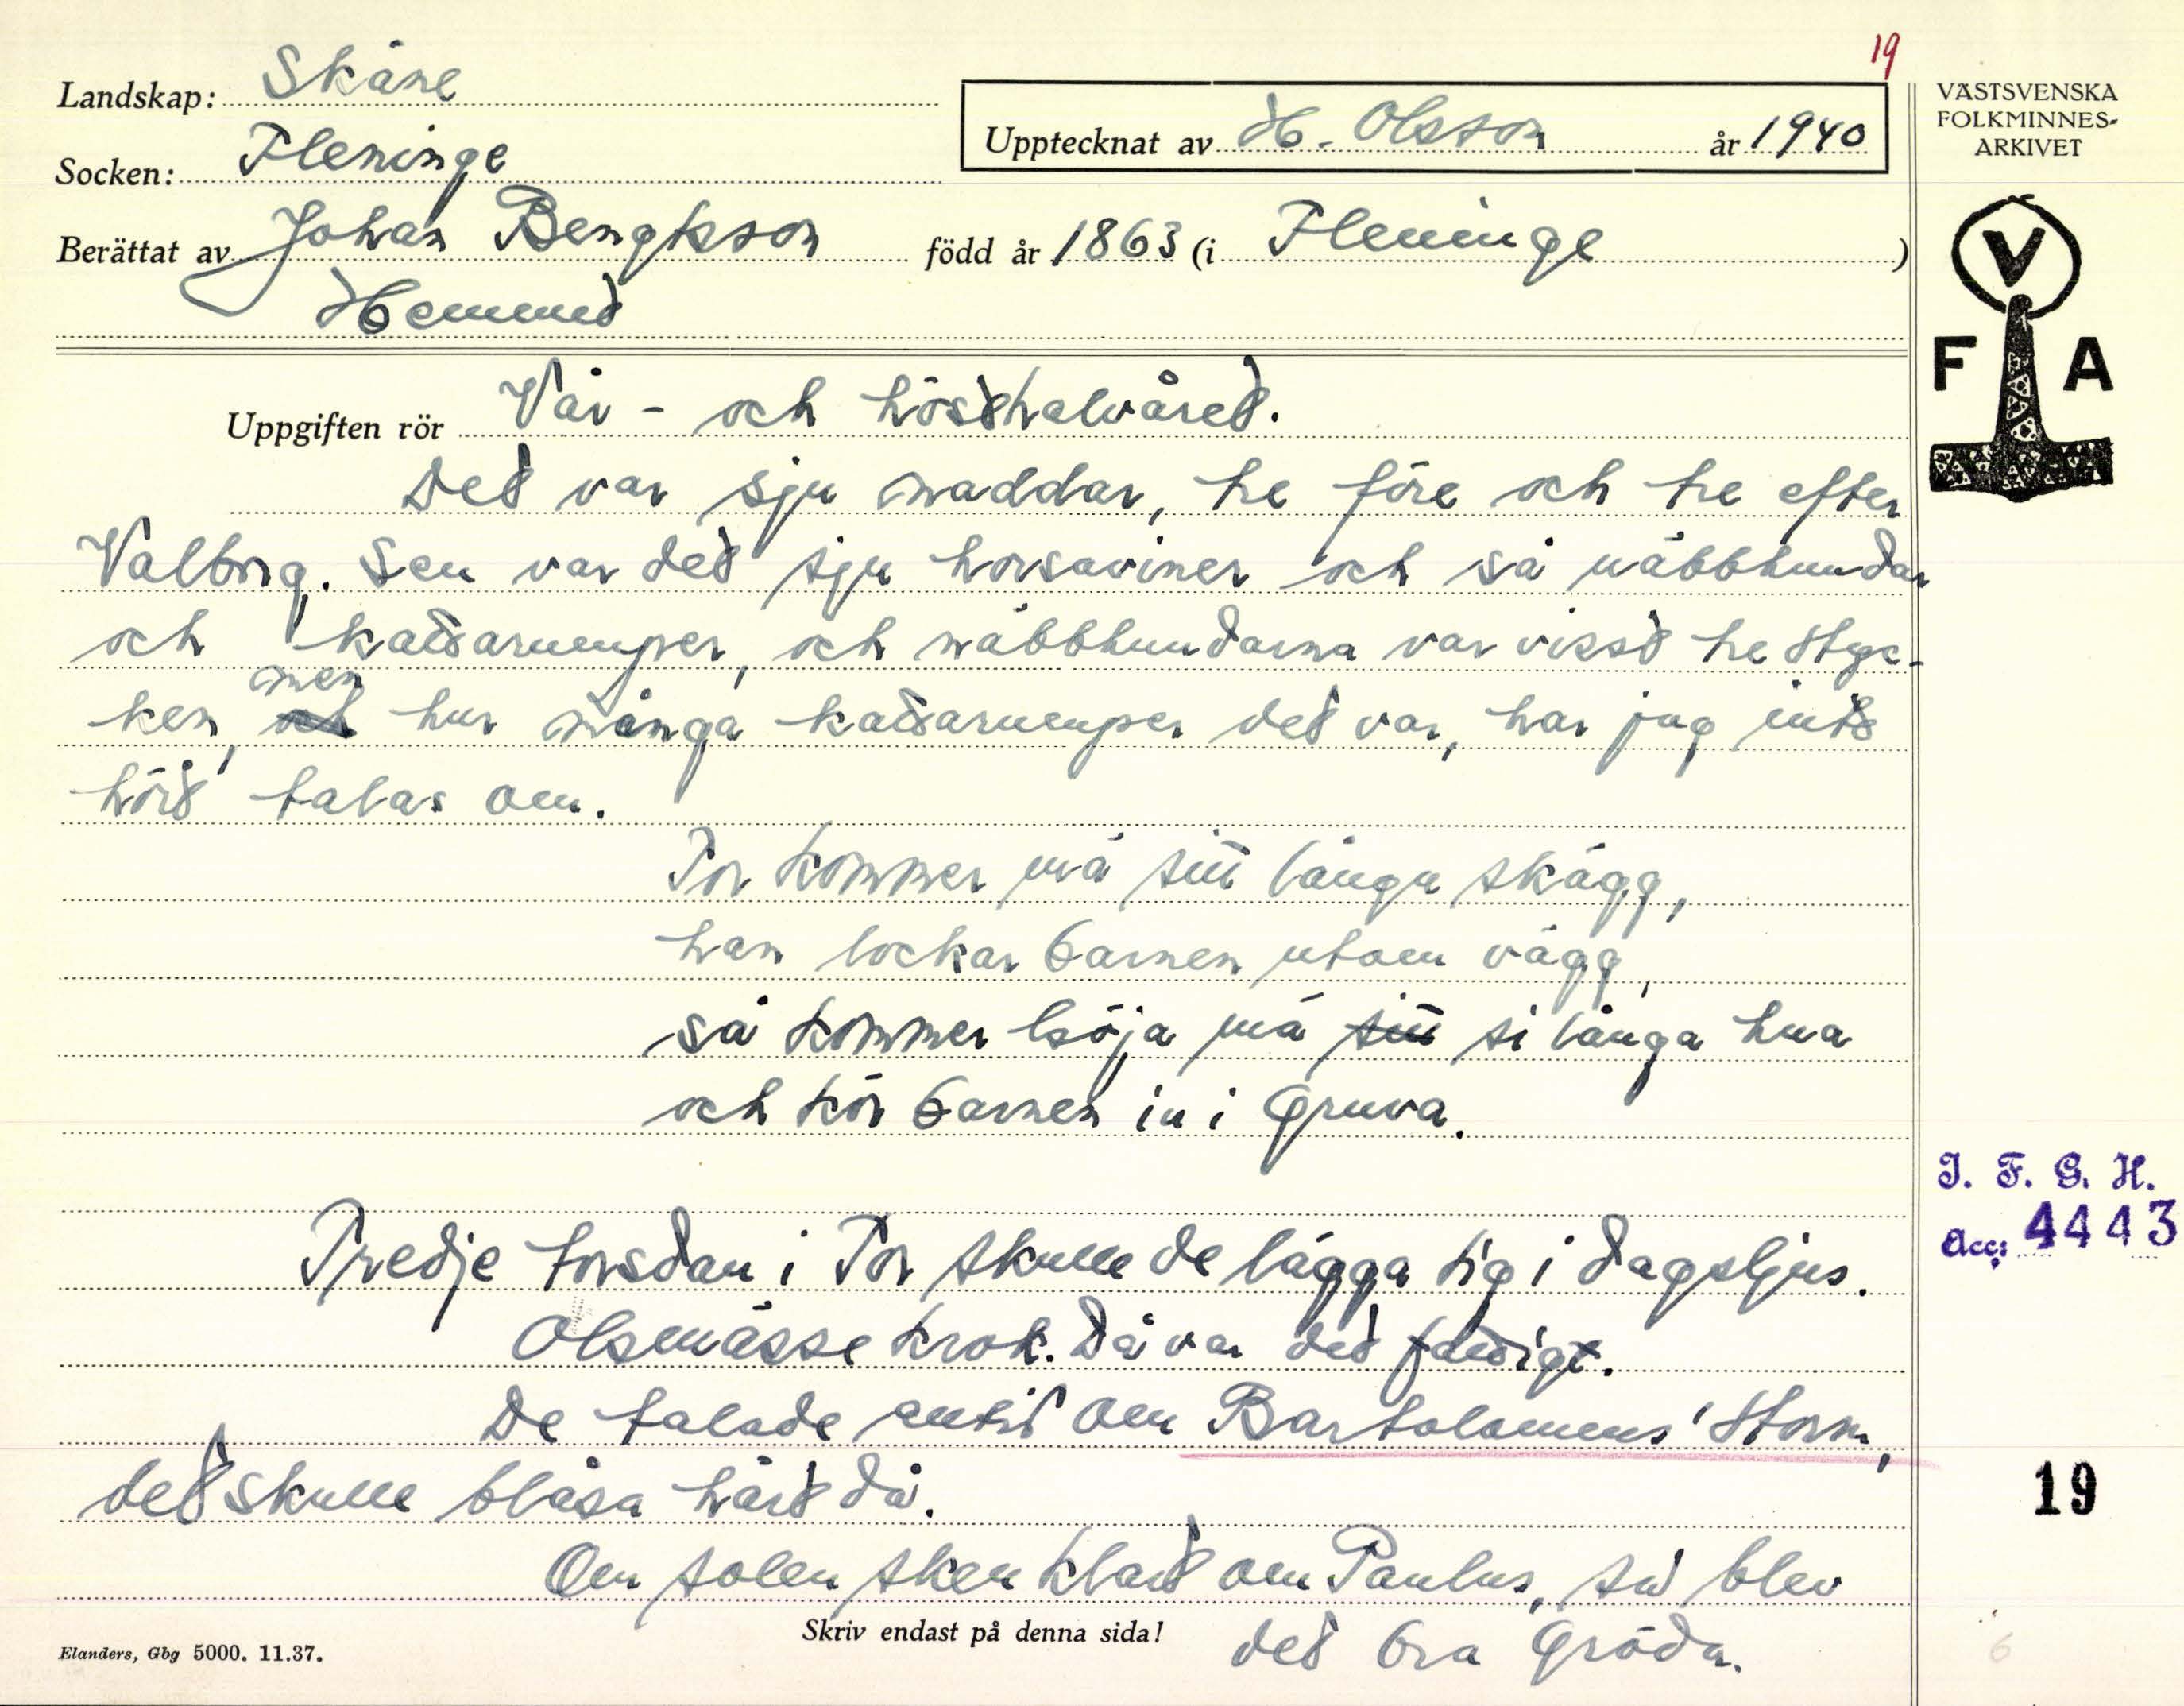 19
Landskap: Skåne
Upptecknat av H. Olsson år 1940
Socken: Fleninge
Berättat av Johan Bengtsson född år 1863 (i Fleninge )
VÄSTSVENSKA
FOLKMINNES-
ARKIVET
V
F A
Uppgiften rör Vår- och hösthalvåret.
Det var sju maddar, tre före och tre efter
Valborg. Sen var det sju horsaviner och så näbbhundar
och kattarumper, och näbbhundarna var visst tre styc-
ken, men hur många kattarumper det var, har jag inte
hört talas om.
Tor kommer må sitt långa skägg,
han lockar barnen utom vägg,
så kommer Göja må si långa hua
och kör barnen in i gruva.
Tredje torsdan i Tor skulle de lägga sig i dagsljus.
Olsmässe krok. Då var det fattigt.
De talade alltid om Bartolomeus' storm,
det skulle blåsa hårt då.
Om solen sken klart om Paulus, så blev
det bra gröda.
I. F. G. H.
Acc: 4443
19
Skriv endast på denna sida!
Elanders, Gbg 5000. 11.37.